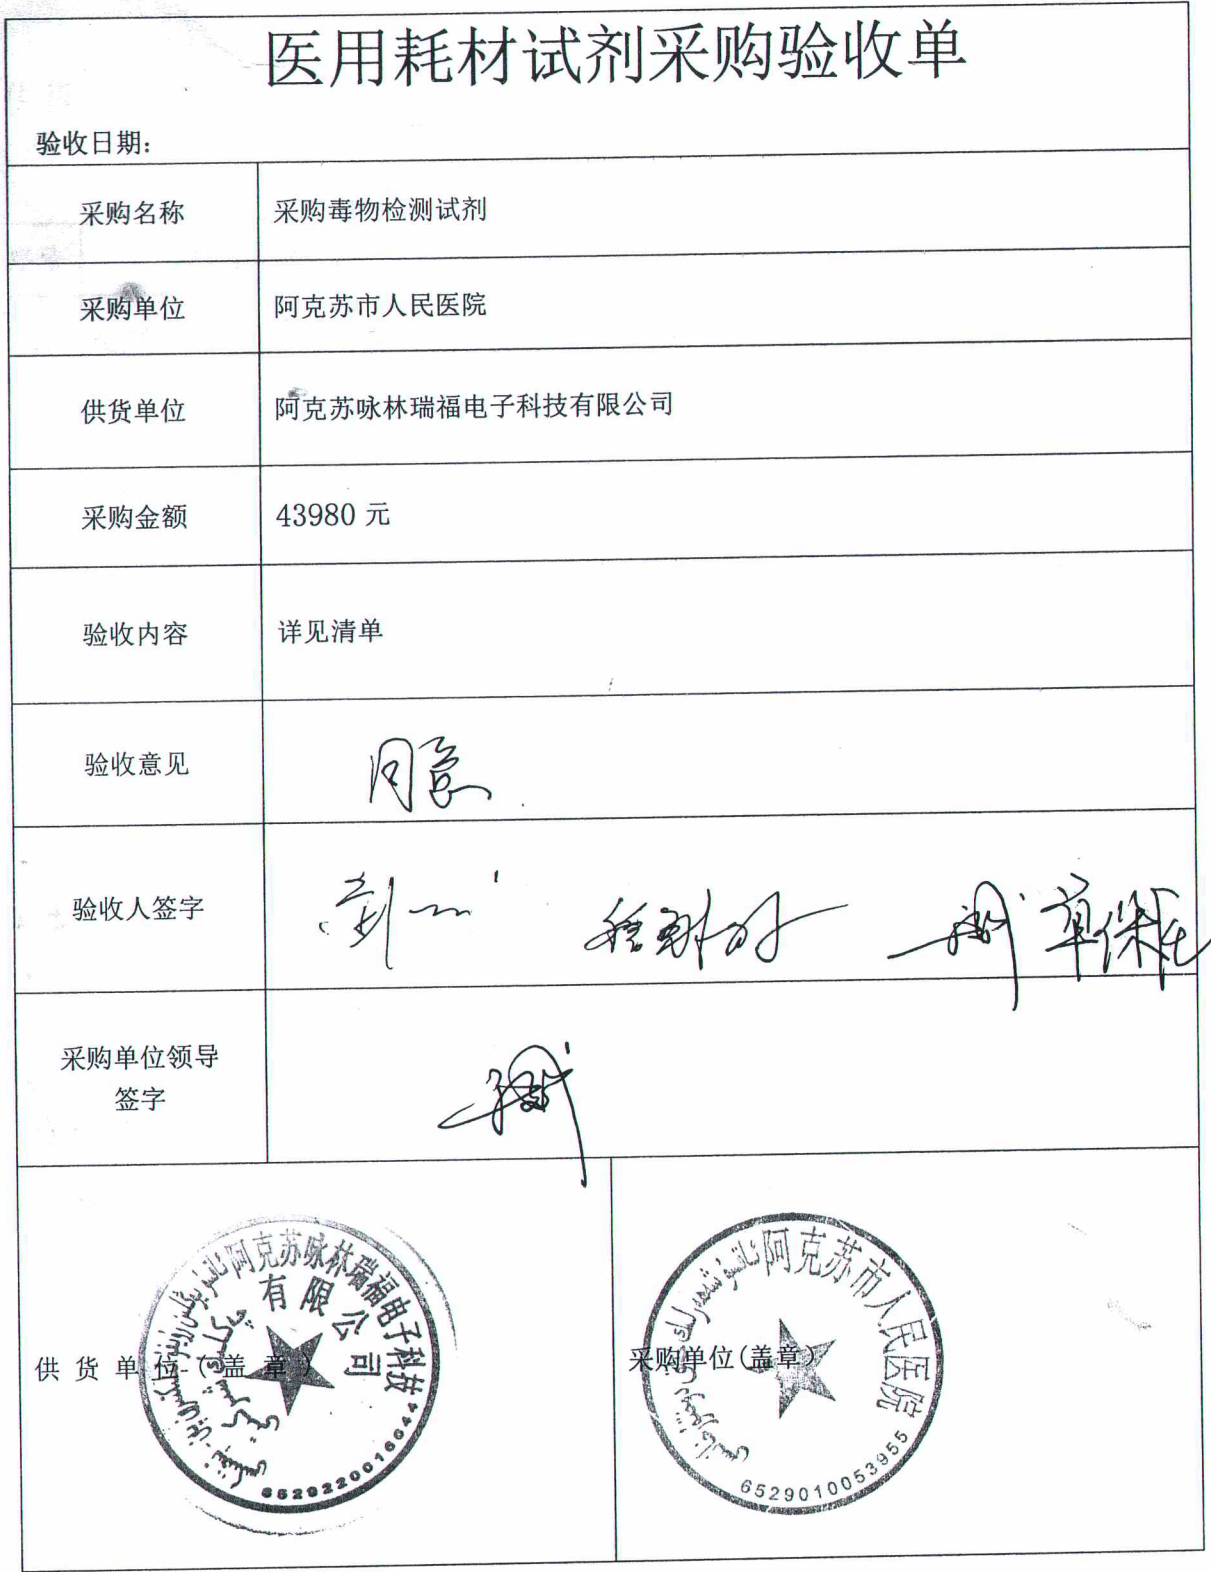 医用耗材试剂采购验收单
验收日期：
采购名称 采购毒物检测试剂
采购单位 阿克苏市人民医院
供货单位 阿克苏咏林瑞福电子科技有限公司
采购金额 43980 元
验收内容 详见清单
验收意见 同意
验收人签字
采购单位领导
签字
供货单位（盖章）
阿克苏咏林瑞福电子科技
有限公司
6529220016644
采购单位(盖章)
阿克苏市人民医院
6529010053955